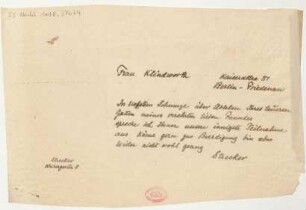 Frau Klindworth
Kaiserallee
Berlin - Friedenau
In tiefstem Schmerze über Ableben Ihres teueren
Gatten meines verehrten lieben Freundes
spreche ich Ihnen unsere innigste Teilnahme
aus käme gern zur Beerdigung bin aber
leider nicht wohl genug